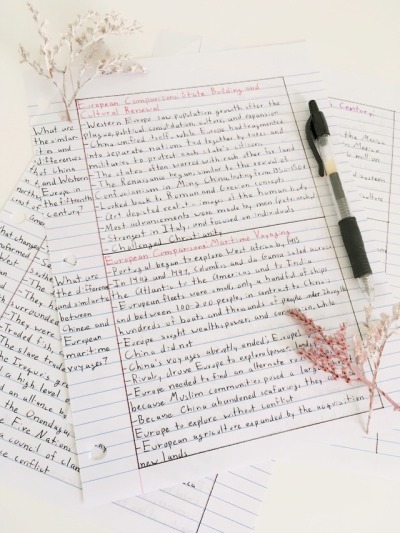 European Comparisons: State Building and
Cultural Renewal
-Western Europe saw population growth after the
plague, political consolidation, culture, and expansion
-China united itself, while Europe had fragmented
into separate nations tied together by taxes and
militaries to protect each state's citizens
-The states often warred with each other for land
-The Renaissance began, similar to the revival of
Confucianism in Ming China, lasting from 1350-1500
-Looked back to Roman and Grecian concepts
-Art depicted realistic images of the human body
-Most advancements were made by men (restricted)
-Strongest in Italy, and focused on individuals
-Challenged Christianity
European Comparisons: Maritime Voyaging
-Portugal began to explore West Africa by 1415
-In 1492 and 1497, Columbus and da Gama sailed across
the Atlantic to the Americas and to India
-European fleets were small, only a handful of ships
and between 100-200 people, in contrast to China's
hundreds of boats and thousands of people under Zheng He
-Europe sought wealth, power, and converts, while
China did not
-China's voyages abruptly ended, Europe's
Rivalry drove Europe to explore
-Europe needed to find an alternate
because Muslim communities posed a large
-Because China abandoned seafaring, they
Europe to explore without conflict
-European agriculture expanded by the acquisition
new lands
What are
the similar
ities and
differences
of China
and Western
Europe in
the fifteenth
century?
What are
the differences
and similarities
between
Chinese and
European
maritime
voyages?
What changes
-They
surrounded
-They were
-Traded fish
the slave trade
the Iroquois's
a high level
an alliance
the Onondaga
Five Nations
a council of clan
conflict
century:
the Mexica
million
system
culture